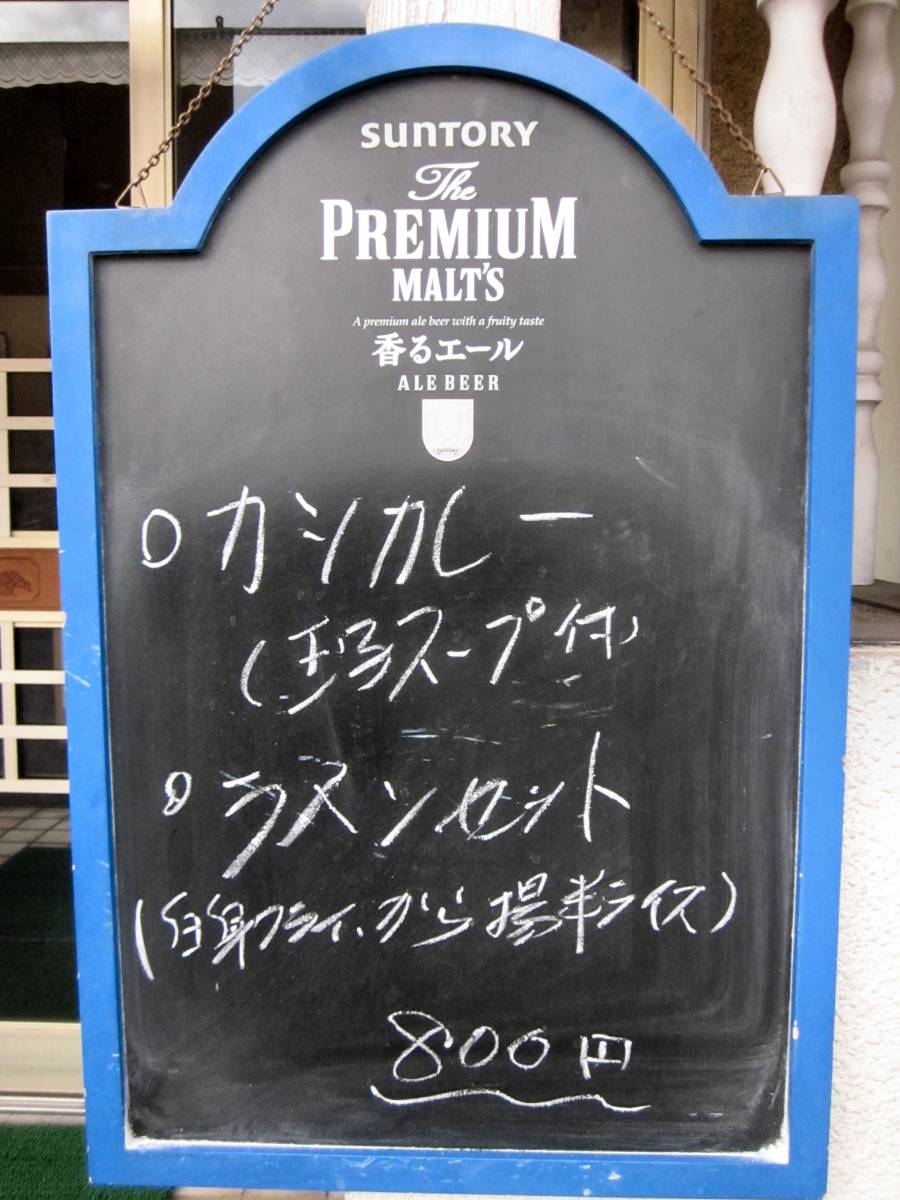 SUNTORY
The
PREMIUM
MALT'S
A premium ale beer with a fruity taste
香るエール
ALE BEER
SUNTORY
○カツカレー
(玉子スープ付)
○ラメンセット
(白身フライ、から揚半ライス)
800円